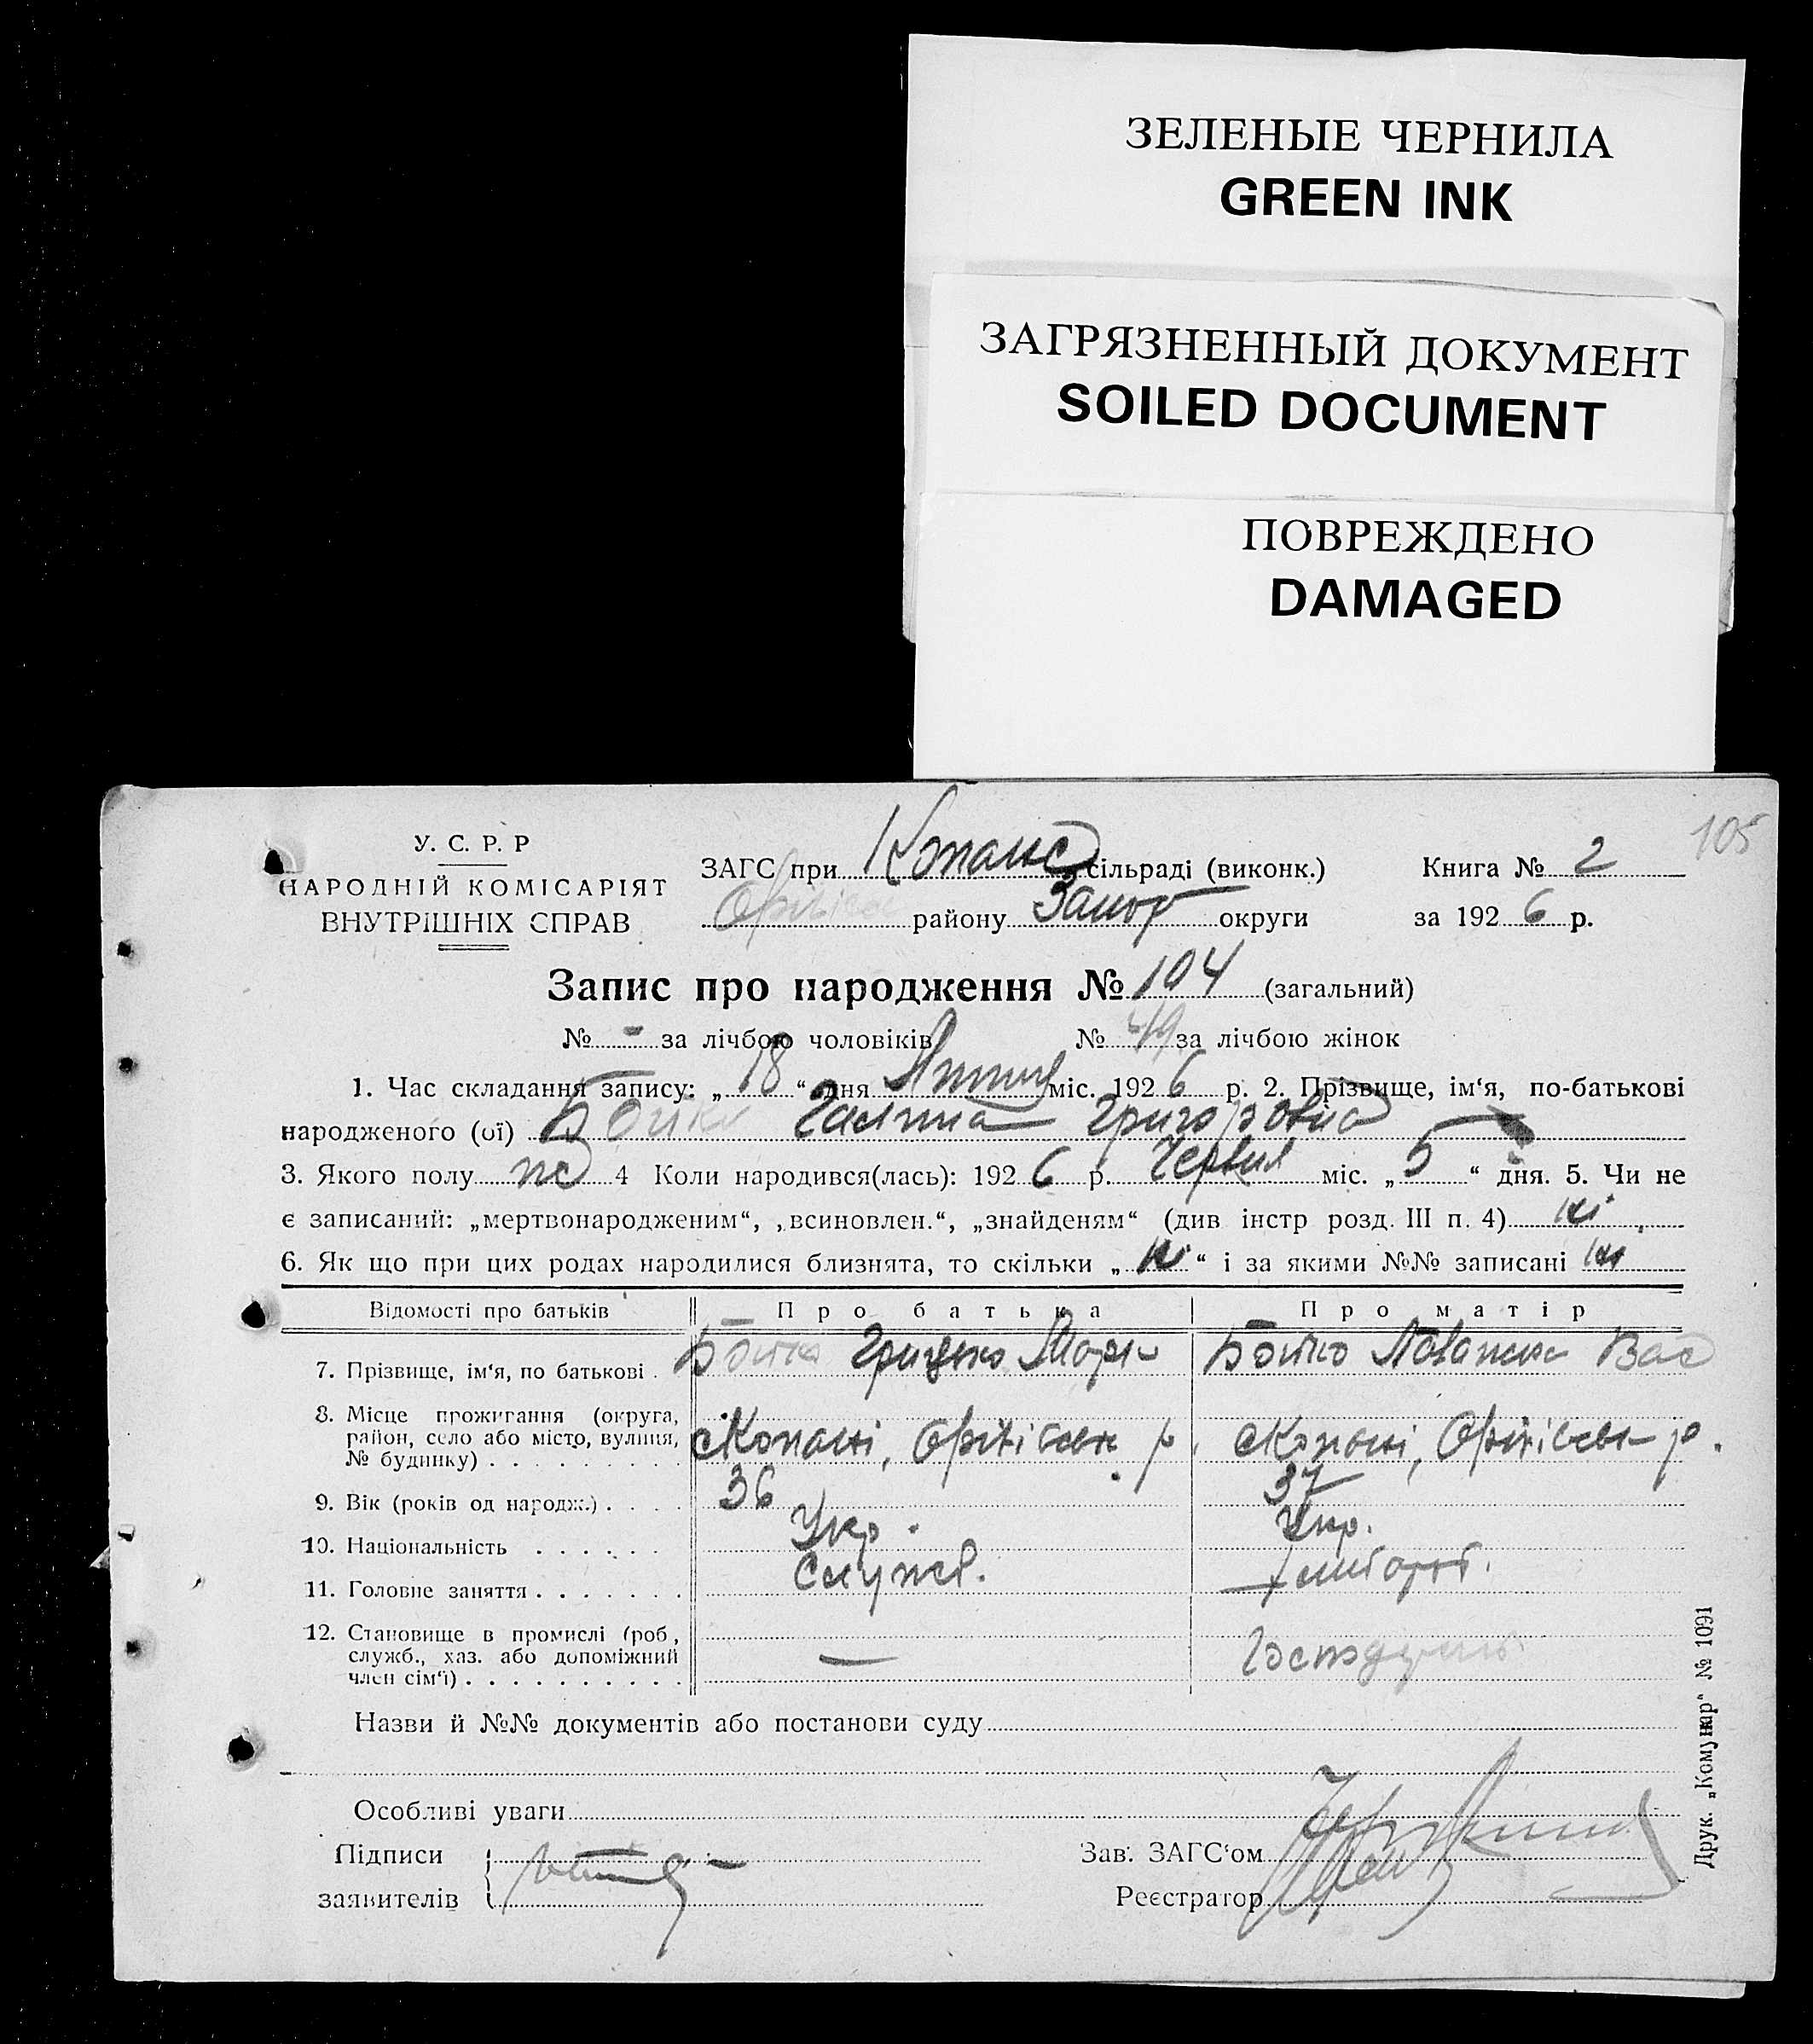 ЗЕЛЕНЫЕ ЧЕРНИЛА
GREEN INK
ЗАГРЯЗНЕННЫЙ ДОКУМЕНТ
SOILED DOCUMENT
ПОВРЕЖДЕНО
DAMAGED
105
У. С. Р. Р
НАРОДНІЙ КОМІСАРІЯТ
ВНУТРІШНІХ СПРАВ
ЗАГС при Копанс сільраді (виконк.) Книга № 2
району Запор округи за 1926 р.
Запис про народження № 104 (загальний)
№ - за лічбою чоловіків № 49 за лічбою жінок
1. Час складання запису: „18“ дня Липня міс. 1926 р. 2. Прізвище, ім‘я, по-батькові
народженого (ої) Бойко Галина Григоровна
3. Якого полу жс 4 Коли народився(лась): 1926 р. Червня міс. „5“ дня. 5. Чи не
є записаний: „мертвонародженим“, „всиновлен.“, „знайденям“ (див інстр розд. III п. 4) ні
6. Як що при цих родах народилися близнята, то скільки „ні“ і за якими №№ записані ні
Відомості про батьків Про батька Про матір
7. Прізвище, ім‘я, по батькові . Бойко Грицько Марк Бойко Вас
8. Місце проживання (округа,
район, село або місто, вулиця,
№ будинку) . . . . . . . . . с Копані, Оріхівськ р. с Копані, Оріхівськ р.
9. Вік (років од народж.) . . . . 36 37
10. Національність . . . . . . Укр. Укр.
11. Головне заняття . . . . . . . Служб. хлібороб.
12. Становище в промислі (роб.,
служб., хаз. або допоміжний
член сім‘ї) . . . . . . . . . . —
Назви й №№ документів або постанови суду
Особливі уваги
Підписи
заявителів
Зав. ЗАГС‘ом
Реєстратор
Друк. „Комунар“ № 1091